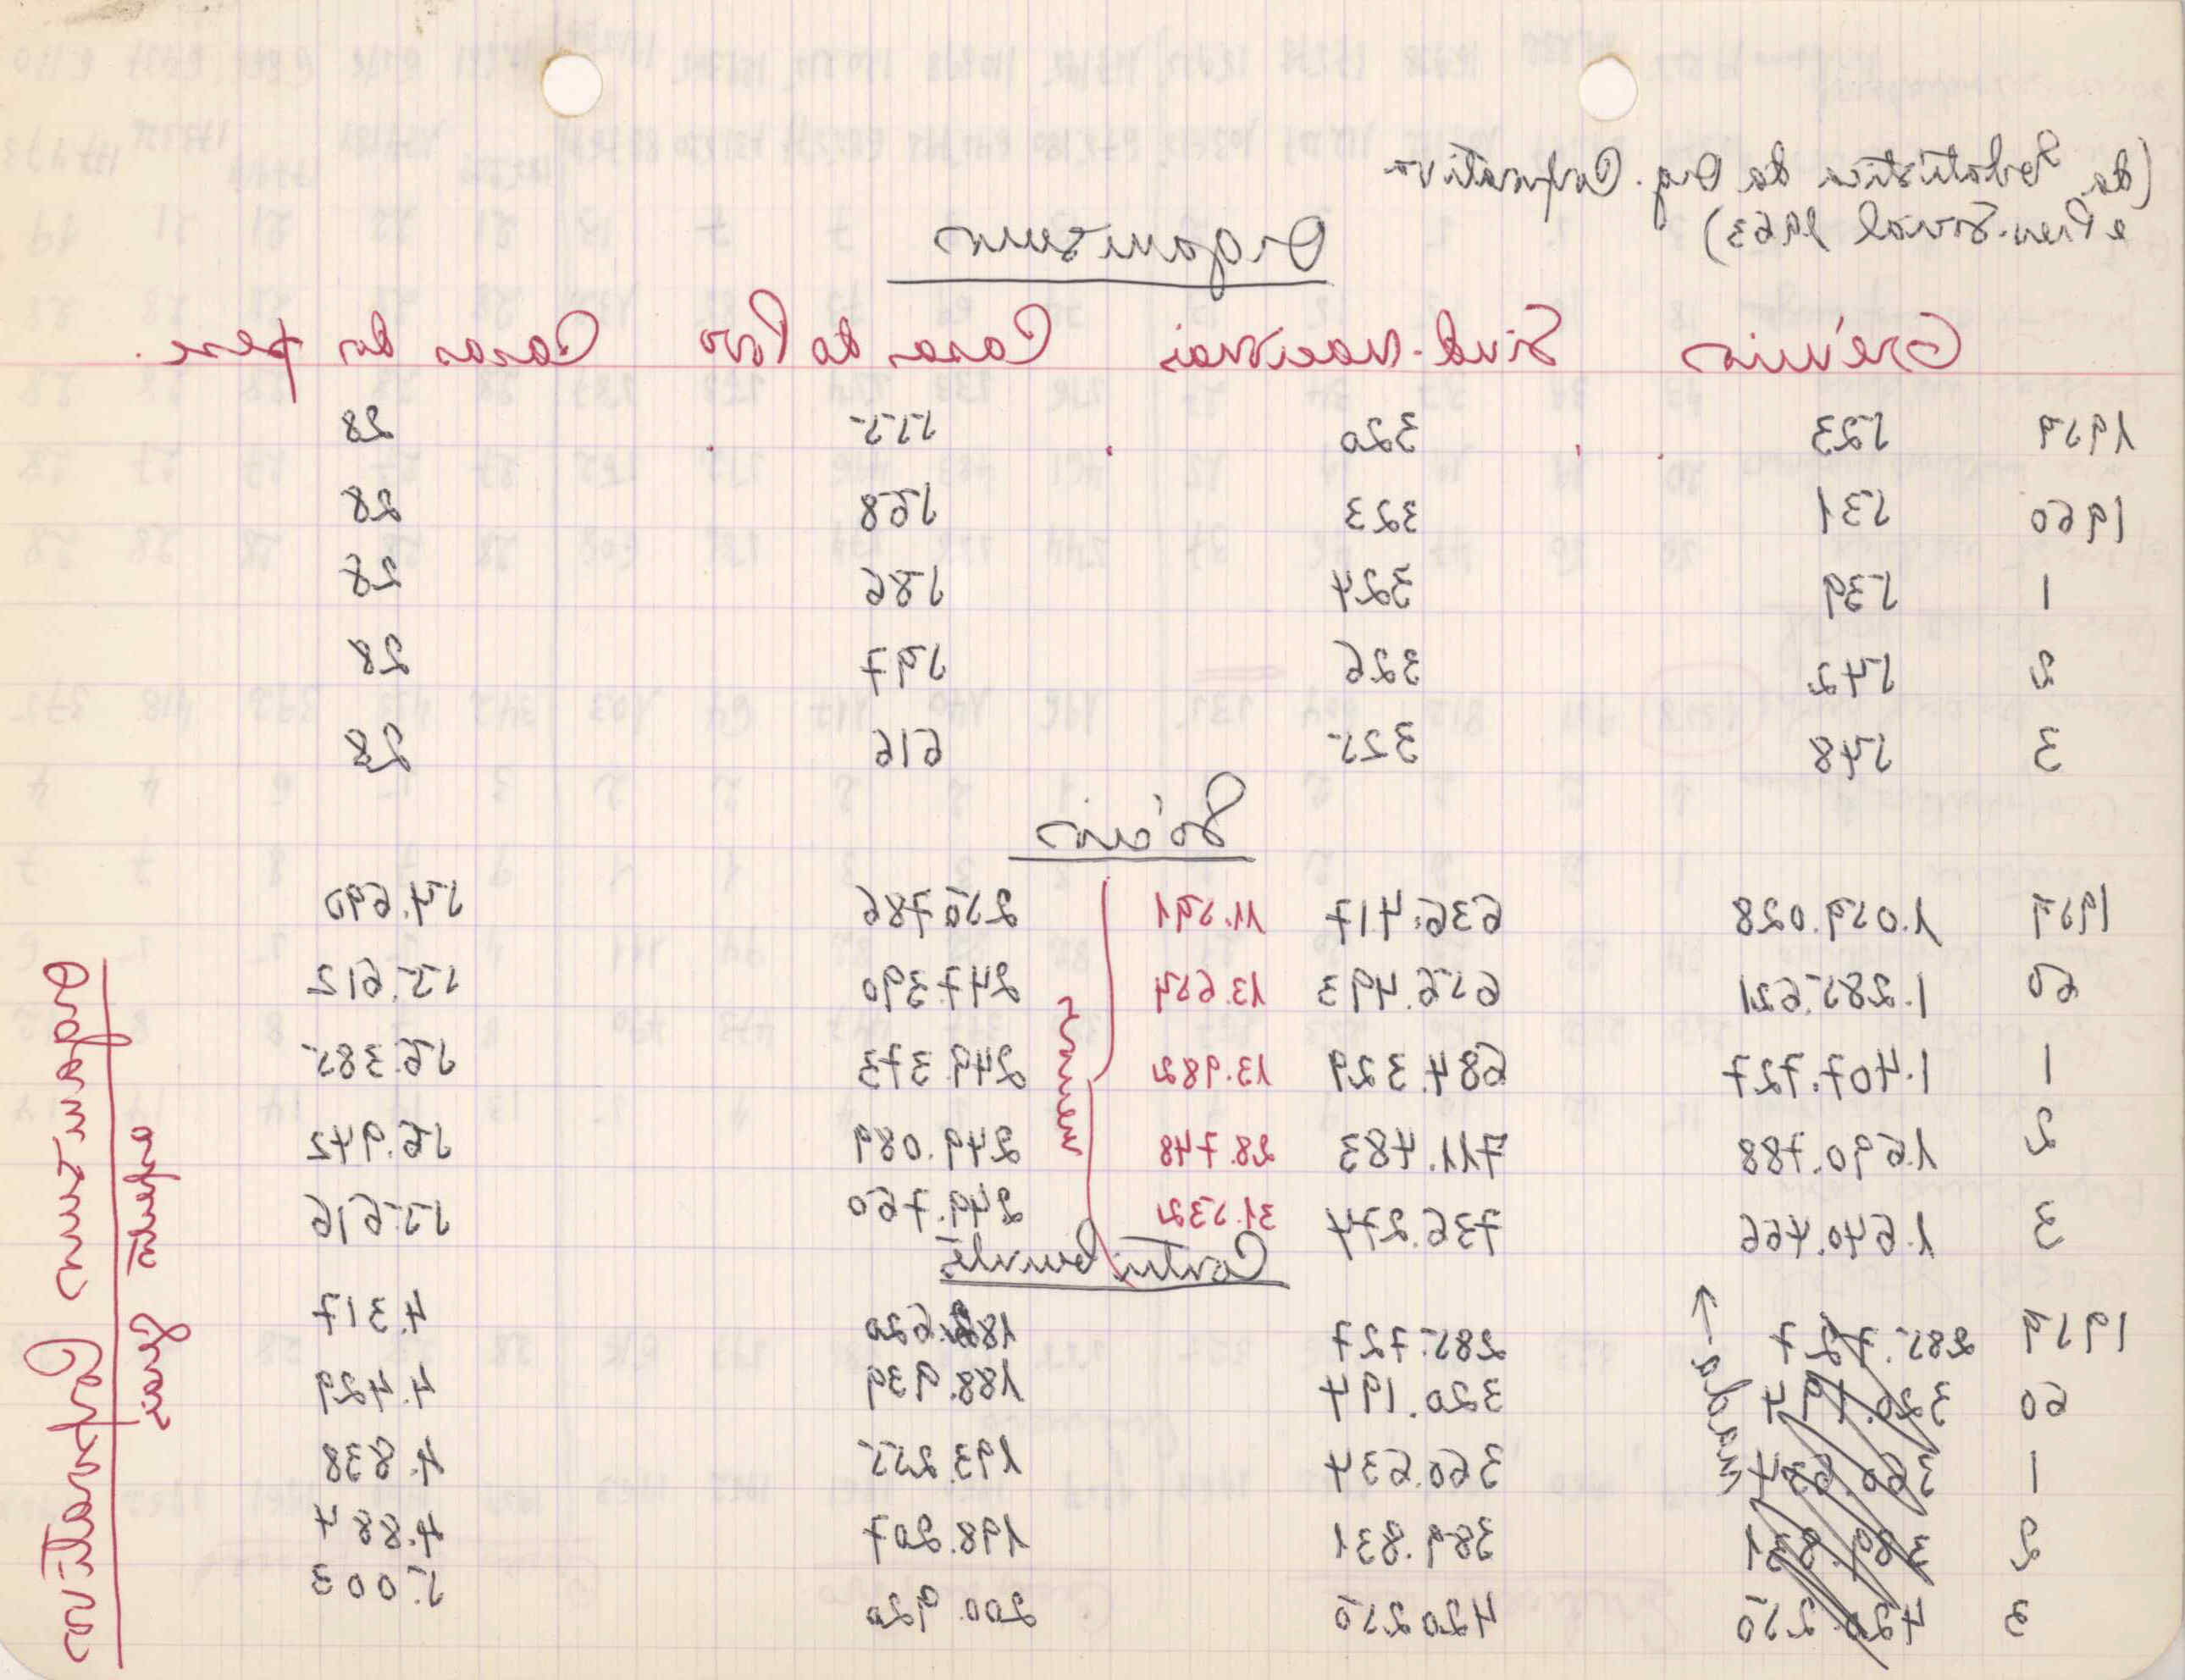 (da Estatística da Org. Corporativa
e Prev. Social 1963)
Organismos
Grémios Sind. Nacionais Casas do Povo Casas dos pesc.
1959 523 320 555 28
1960 531 323 568 28
1 539 324 586 28
2 542 326 597 28
3 548 325 616 28
Sócios
1959 1.059.028 636.417 11.591 250786 54.690
60 1.285.621 656.493 13.654 247.390 55.612
1 1.407.727 684.329 13.982 249.373 56.385
2 1.690.788 711.483 28.748 249.089 56.972
3 1.640.466 736.274 31.532 249.760 55.616
Contribuintes
1959 285.727 285.727 186.620 4.317
60 320.194 320.194 188.939 4.429
1 360.634 360.634 193.255 4.838
2 389.831 389.831 198.207 4.884
3 420.250 420.250 200.920 5.003
Organismos Corporativos
aspectos Gerais